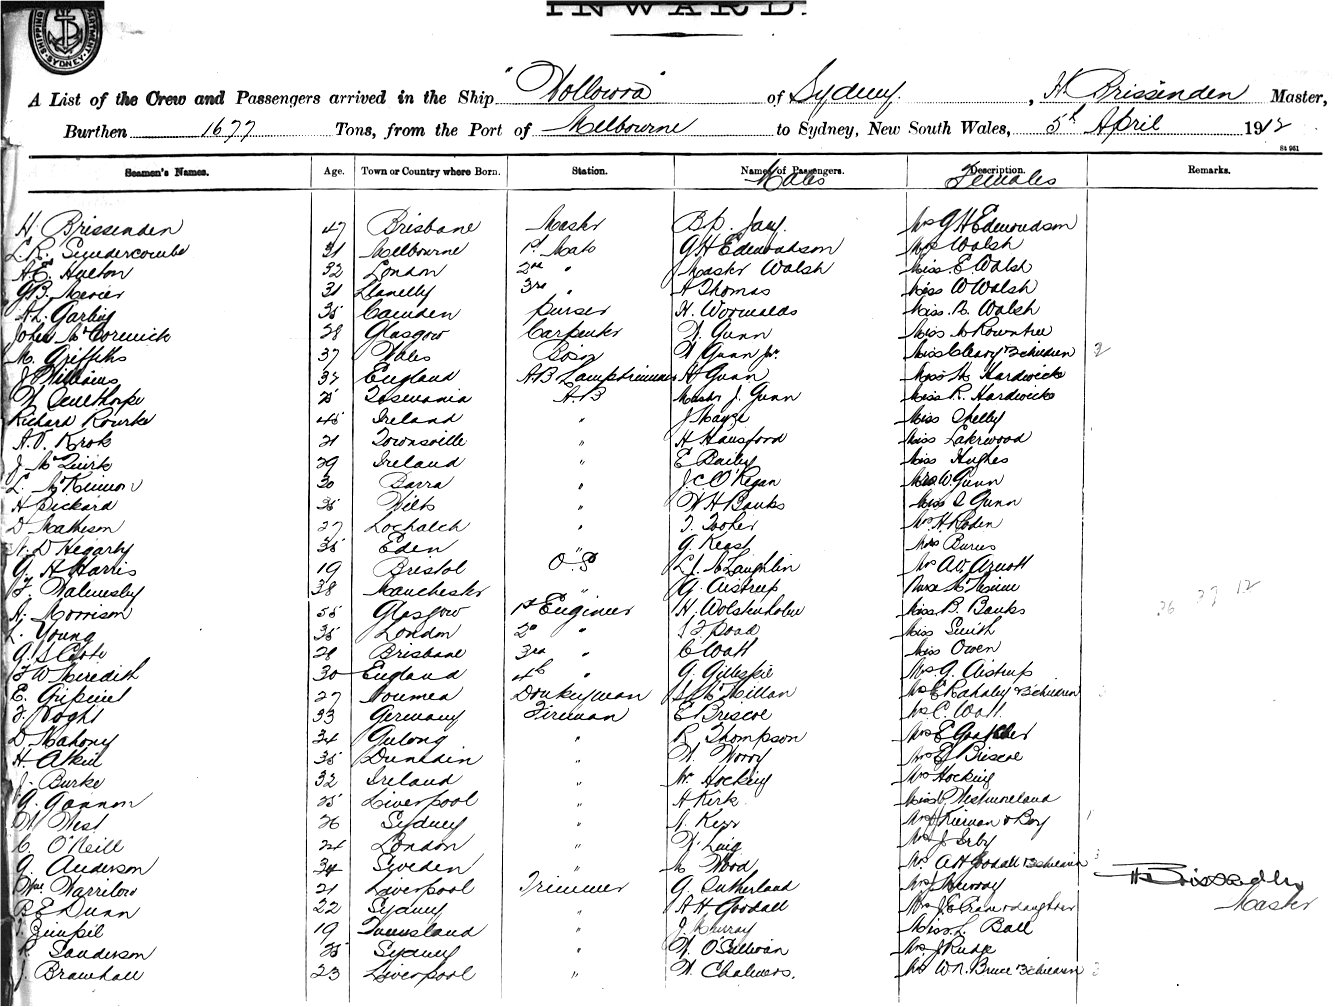 SHIPPING
SYDNEY
INWARD.
A List of the Crew and Passengers arrived in the Ship "Wollowra" of Sydney, H Brissenden Master,
Burthen 1677 Tons, from the Port of Melbourne to Sydney, New South Wales, 5th April 1912
84 961
Seamen's Names. Age. Town or Country where Born. Station. Names of Passengers. Description. Remarks.
Males Females
H. Brissenden 47 Brisbane Master Bp. Jay. Mrs G H Edmondson
Melbourne 1st Mate G H Edmondson Mrs Walsh
32 London 2nd " Master Walsh Miss E Walsh
G B Mercer 31 Llanelly 3rd " A Thomas Miss W Walsh
A L Garling 35 Camden Purser H. Miss R. Walsh
John McCormick 28 Glasgow Carpenter W. Gunn Miss M Rowntree
M. Griffiths 37 Wales Bosn W Gunn jr. Miss Cleary & children 2
J Williams 37 England AB Lamptrimmer H Gunn Miss H. Hardwicke
W 25 Tasmania A.B Master J. Gunn Miss R. Hardwicke
Richard Rourke 45 Ireland " J Miss Shelly
A. O. Krok 21 Townsville " H Hansford Miss Lakewood
J McQuirk 29 Ireland " E Bailey Miss Hughes
L. McKinnon 30 Barra " J C O'Regan Mrs W. Gunn
H Pickard 35 Wilts " W H Banks Miss I Gunn
D Matheson 27 " T. Tooher Mrs H Roden
D Hegarty 35 Eden " G. Keast Mrs Burns
G H Harris 19 Bristol O.S L. J. McLaughlin Mrs A V Arnott
T. Walmesley 38 Manchester " G. Aistrup Nurse
A. Morrison 55 Glasgow 1st Engineer H. Wolstenholme Miss B. Banks 26 27 12
L. Young 35 London 2nd " Miss Smith
G. S Cloti 28 Brisbane 3rd " C Watt Miss Owen
F W Meredith 30 England 4th " G. Gillespie Mrs G. Aistrup
E. 27 Noumea Donkeyman McMillan Mrs E Rahaley & 3 children 3
F. Voght 33 Germany Fireman E Briscoe Mrs C. Watt.
D Mahony 34 Geelong " R Thompson Mrs E
H Atkin 35 Dunedin " W. Mrs E Briscoe
J. Burke 32 Ireland " Wm Hocking Mrs Hocking
G. Gannon 25 Liverpool " H Kirk Miss P. Westmoreland
W. West 26 Sydney " A Kerr Mrs J Kiernan & Boy 1
C O'Neill 24 London " W. Mrs J. Irby
G. Anderson 34 Sweden " M Wood Mrs A H Goodall 3 children 3
Wm Warrilow 21 Liverpool Trimmer G. Sutherland Mrs J Murray
B E Dunn 22 Sydney " A H Goodall Mrs J. E Crane & daughter
19 " J. Murray Miss L Ball
Sanderson 25 Sydney " W. O'Sullivan Mrs J Rudge
J. Bramhall 23 Liverpool " W Chalmers. Mrs W R. Bruce 3 children 3
H Brissenden
Master